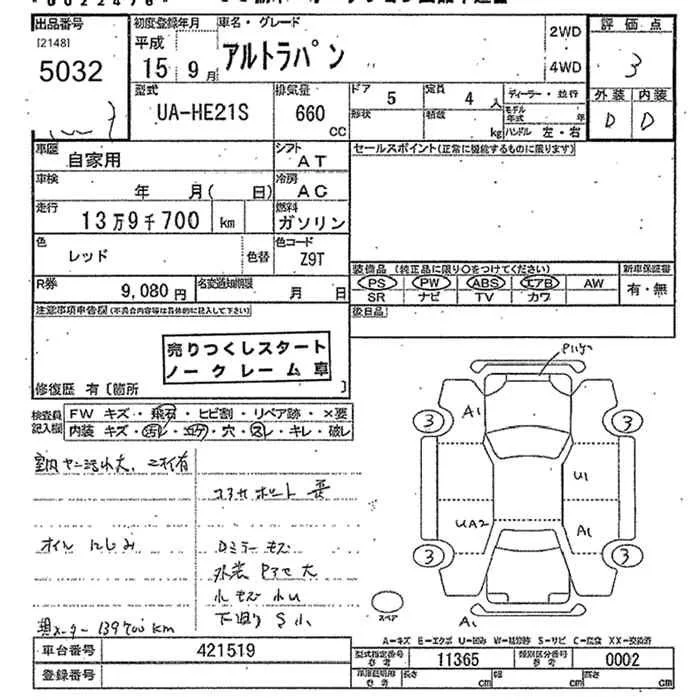 出品番号
[2148]
5032
初度登録年月
平成
15年9月
車名・グレード
アルトラパン
2WD
4WD
評価点
3
外装 内装
D D
型式
UA-HE21S
排気量
660
CC
ドア
5
定員
4人
形状
積載
kg
ディーラー・並行
モデル年式 年
ハンドル 左・右
車歴
自家用
シフト
AT
セールスポイント(正常に機能するものに限ります)
車検
年 月( 日)
冷房
AC
走行
13万9千700 km
燃料
ガソリン
色
レッド
色替
色コード
Z9T
装備品(純正品に限り○をつけてください)
新車保証書
PS PW ABS エアB AW
有・無
SR ナビ TV カワ
R券
9,080円
名変通知期限
月 日
後日品
注意事項申告欄(不具合内容等は具体的に記入して下さい)
売りつくしスタート
ノークレーム車
修復歴 有〔箇所 〕
検査員記入欄
FW キズ・飛石・ヒビ割・リペア跡・×要
内装 キズ・汚レ・コゲ・穴・スレ・キレ・破レ
オイルにじみ
Dミラーキズ
小キズ 小U
下廻りS小
139700km
A1
3
3
U1
UA2
A1
3
3
スペア
A1
A=キズ E=エクボ U=凹み W=補修跡 S=サビ C=腐食 XX=交換済
車台番号
421519
型式指定番号
参考
11365
類別区分番号
参考
0002
登録番号
参考
長さ cm
幅 cm
高さ cm